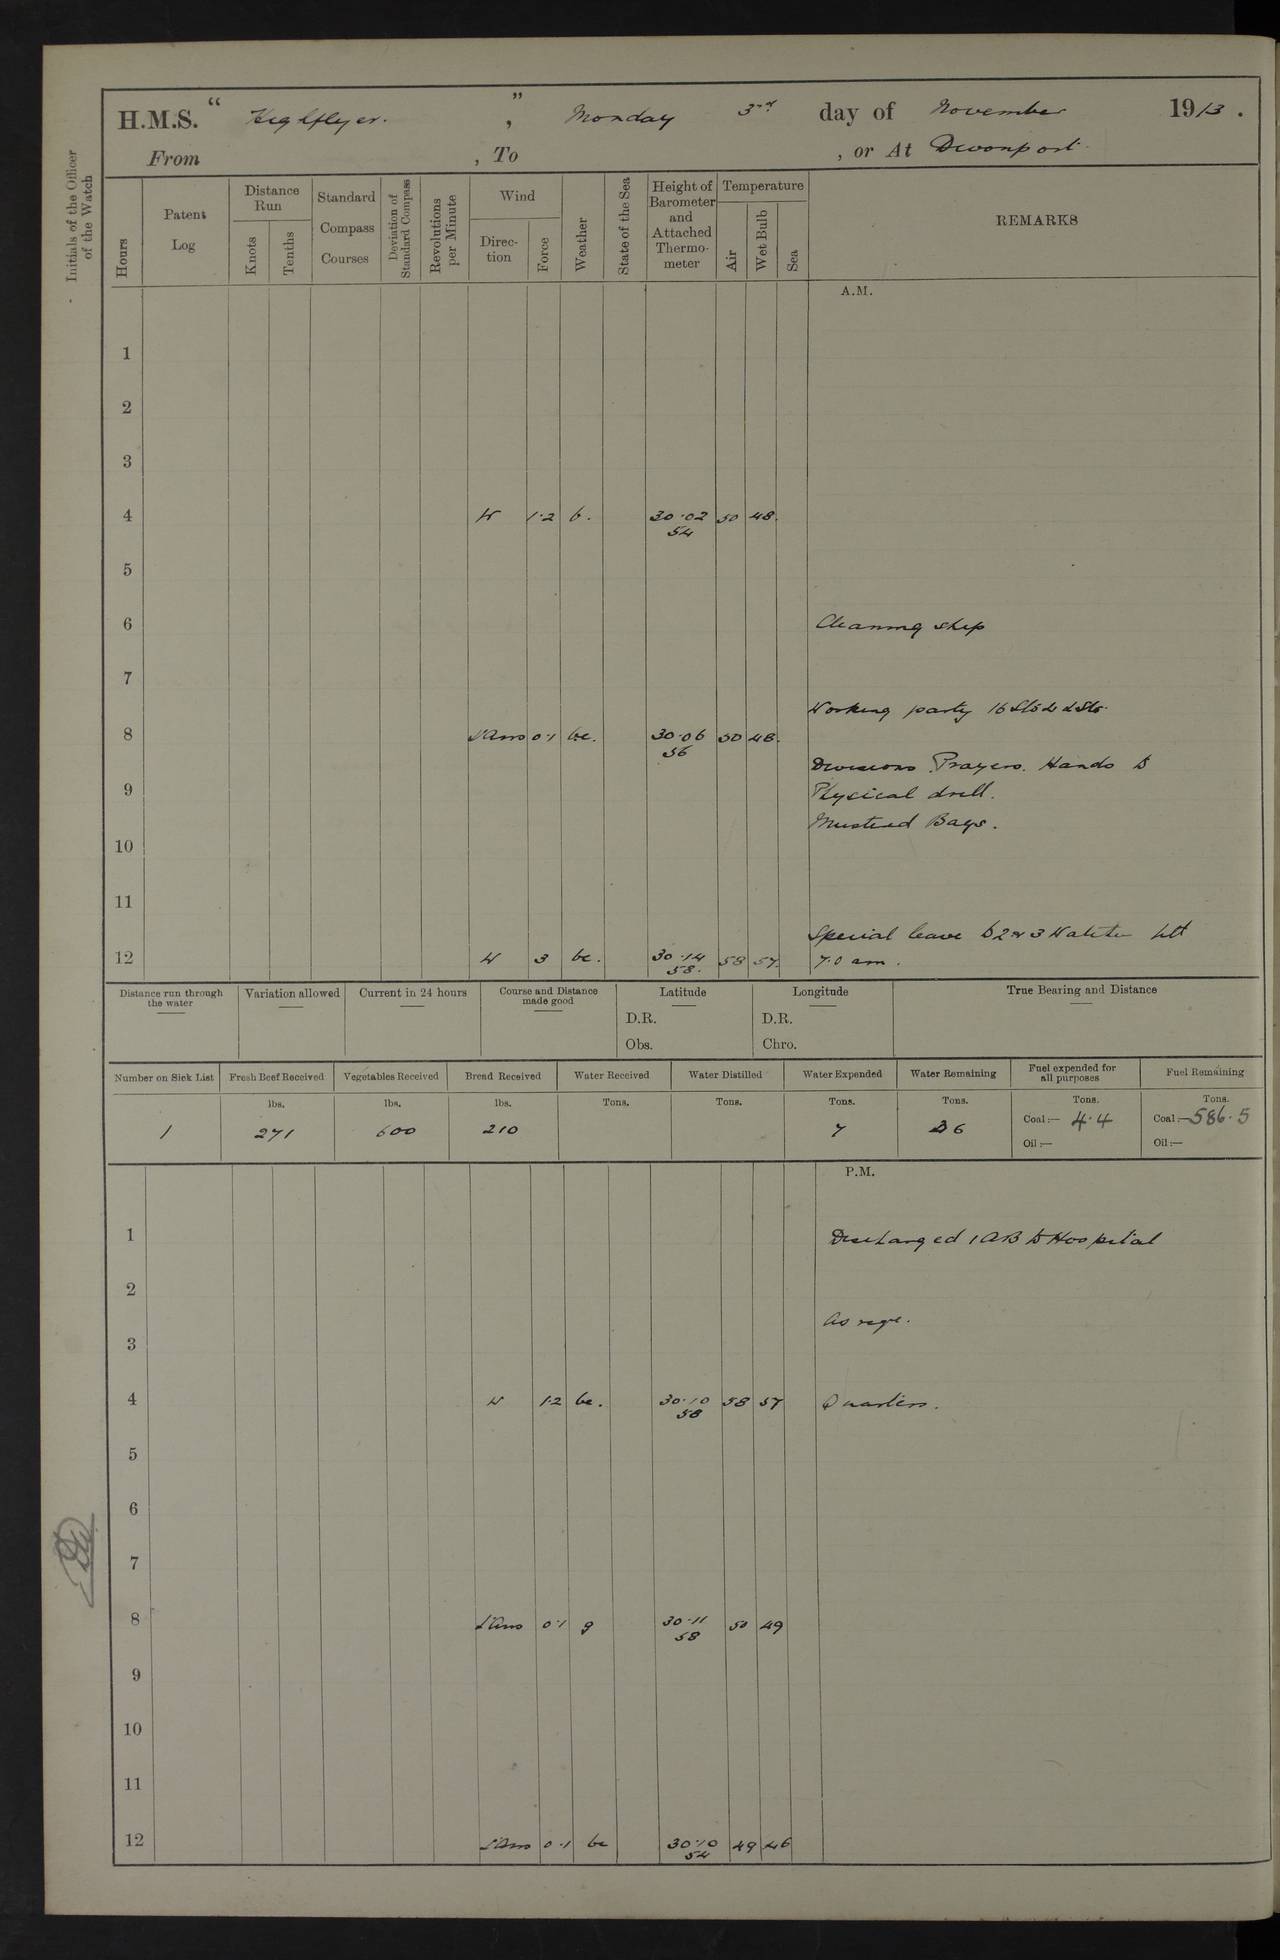 H.M.S. "Highflyer.", Monday 3rd day of November 1913.
From , To , or At Devonport
Initials of the Officer of the Watch
Hours
Patent Log
Distance Run
Knots
Tenths
Standard Compass Courses
Deviation of Standard Compass
Revolutions per Minute
Wind
Direction
Force
Weather
State of the Sea
Height of Barometer and Attached Thermometer
Temperature
Air
Wet Bulb
Sea
REMARKS
A.M.
1
2
3
4 W 1.2 b. 30.02 50 48.
54
5
6 Cleaning ship
7
Working party 16
8 L'Airs 0.1 bc. 30.06 50 48.
56
Divisions. Prayers. Hands to
9 Physical drill.
Mustered Bags.
10
11
Special leave to 2 & 3 Watch till
12 W 3 bc. 30.14 58 57. 7.0 am.
58.
Distance run through the water
Variation allowed
Current in 24 hours
Course and Distance made good
Latitude
D.R.
Obs.
Longitude
D.R.
Chro.
True Bearing and Distance
Number on Sick List
Fresh Beef Received
Vegetables Received
Bread Received
Water Received
Water Distilled
Water Expended
Water Remaining
Fuel expended for all purposes
Fuel Remaining
lbs. lbs. lbs. Tons. Tons. Tons. Tons. Tons. Tons.
1 271 600 210 7 36 Coal:— 4.4 Coal:— 586.5
Oil:— Oil:—
P.M.
1 Discharged 1 AB to Hospital
2
As reqe.
3
4 W 1.2 bc. 30.10 58 57 Quarters.
58
5
6
7
8 L'Airs 0.1 g 30.11 50 49
58
9
10
11
12 L'Airs 0.1 bc 30.10 49 46
54